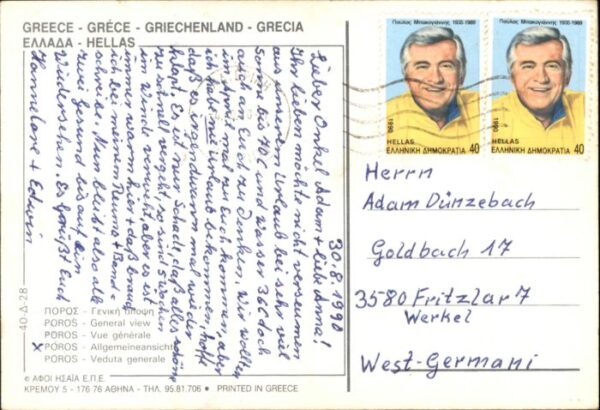 GREECE - GRÉCE - GRIECHENLAND - GRECIA
ΕΛΛΑΔΑ - HELLAS
30.8.1990
Lieber Onkel Adam + liebe Anne!
Ihr Lieben möchte nicht versäumen
aus unserem Urlaub bei sehr viel
Sonne bis 40C und Wasser 36C doch
auch an Euch zu Denken. Wir wollten
im April zu Euch kommen, aber
ich habe nie Urlaub bekommen, hoffe
daß es irgendwann mal wieder
klapt. Es ist nur Schade, daß alles schöne
zu schnell vergeht, so sind 5 Wochen
im würds nicht aber es ist
immer warm hier + daß brauch
ich bei meinem Reuma + Band=
scheibe. Nun bleibt also alle
zwei Gesund bis auf ein
Wiedersehen. Es Grüßt Euch
Hannelore + Edwin
40-Δ-28
ΠΟΡΟΣ - Γενική άποψη
POROS - General view
POROS - Vue générale
x POROS - Allgemeineansicht
POROS - Veduta generale
© ΑΦΟΙ ΗΣΑΪΑ Ε.Π.Ε.
ΚΡΕΜΟΥ 5 - 176 76 ΑΘΗΝΑ - ΤΗΛ. 95.81.706 • PRINTED IN GREECE
Παύλος Μπακογιάννης 1935-1989
1990
HELLAS
ΕΛΛΗΝΙΚΗ ΔΗΜΟΚΡΑΤΙΑ 40
Παύλος Μπακογιάννης 1935-1989
1990
HELLAS
ΕΛΛΗΝΙΚΗ ΔΗΜΟΚΡΑΤΙΑ 40
Herrn
Adam Dünzebach
Goldbach 17
3580 Fritzlar 7
Werkel
West-Germani